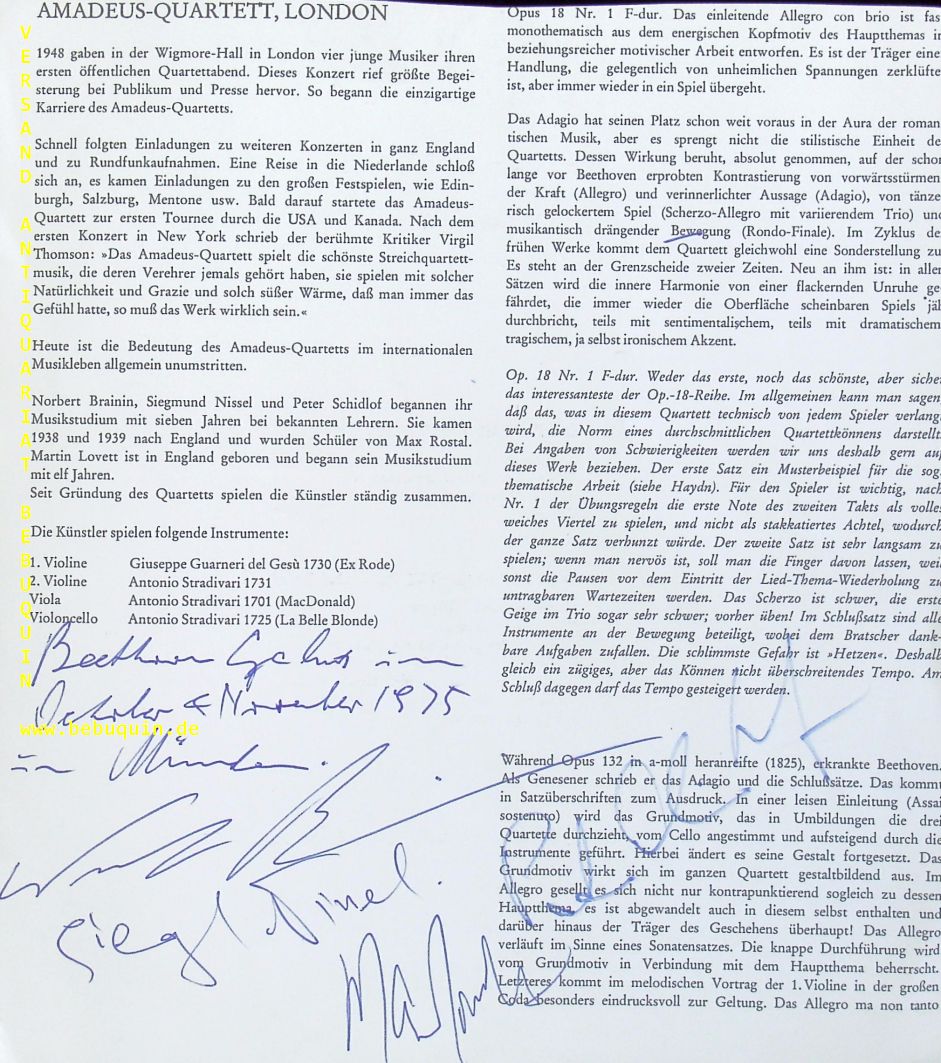 AMADEUS-QUARTETT, LONDON
1948 gaben in der Wigmore-Hall in London vier junge Musiker ihren
ersten öffentlichen Quartettabend. Dieses Konzert rief größte Begei-
sterung bei Publikum und Presse hervor. So begann die einzigartige
Karriere des Amadeus-Quartetts.
Schnell folgten Einladungen zu weiteren Konzerten in ganz England
und zu Rundfunkaufnahmen. Eine Reise in die Niederlande schloß
sich an, es kamen Einladungen zu den großen Festspielen, wie Edin-
burgh, Salzburg, Mentone usw. Bald darauf startete das Amadeus-
Quartett zur ersten Tournee durch die USA und Kanada. Nach dem
ersten Konzert in New York schrieb der berühmte Kritiker Virgil
Thomson: »Das Amadeus-Quartett spielt die schönste Streichquartett-
musik, die deren Verehrer jemals gehört haben, sie spielen mit solcher
Natürlichkeit und Grazie und solch süßer Wärme, daß man immer das
Gefühl hatte, so muß das Werk wirklich sein.«
Heute ist die Bedeutung des Amadeus-Quartetts im internationalen
Musikleben allgemein unumstritten.
Norbert Brainin, Siegmund Nissel und Peter Schidlof begannen ihr
Musikstudium mit sieben Jahren bei bekannten Lehrern. Sie kamen
1938 und 1939 nach England und wurden Schüler von Max Rostal.
Martin Lovett ist in England geboren und begann sein Musikstudium
mit elf Jahren.
Seit Gründung des Quartetts spielen die Künstler ständig zusammen.
Die Künstler spielen folgende Instrumente:
1. Violine Giuseppe Guarneri del Gesù 1730 (Ex Rode)
2. Violine Antonio Stradivari 1731
Viola Antonio Stradivari 1701 (MacDonald)
Violoncello Antonio Stradivari 1725 (La Belle Blonde)
Beethoven im
October & November 1975
in München.
Siegm. Nissel.
VERSAND ANTIQUARIAT BEBUQUIN
www.bebuquin.de
Opus 18 Nr. 1 F-dur. Das einleitende Allegro con brio ist fas
monothematisch aus dem energischen Kopfmotiv des Hauptthemas i
beziehungsreicher motivischer Arbeit entworfen. Es ist der Träger eine
Handlung, die gelegentlich von unheimlichen Spannungen zerklüfte
ist, aber immer wieder in ein Spiel übergeht.
Das Adagio hat seinen Platz schon weit voraus in der Aura der roman
tischen Musik, aber es sprengt nicht die stilistische Einheit de
Quartetts. Dessen Wirkung beruht, absolut genommen, auf der schon
lange vor Beethoven erprobten Kontrastierung von vorwärtsstürmen
der Kraft (Allegro) und verinnerlichter Aussage (Adagio), von tänze
risch gelockertem Spiel (Scherzo-Allegro mit variierendem Trio) und
musikantisch drängender Bewegung (Rondo-Finale). Im Zyklus de
frühen Werke kommt dem Quartett gleichwohl eine Sonderstellung zu
Es steht an der Grenzscheide zweier Zeiten. Neu an ihm ist: in allen
Sätzen wird die innere Harmonie von einer flackernden Unruhe ge
fährdet, die immer wieder die Oberfläche scheinbaren Spiels jäh
durchbricht, teils mit sentimentalischem, teils mit dramatischem
tragischem, ja selbst ironischem Akzent.
Op. 18 Nr. 1 F-dur. Weder das erste, noch das schönste, aber sicher
das interessanteste der Op.-18-Reihe. Im allgemeinen kann man sagen,
daß das, was in diesem Quartett technisch von jedem Spieler verlang
wird, die Norm eines durchschnittlichen Quartettkönnens darstellt
Bei Angaben von Schwierigkeiten werden wir uns deshalb gern auf
dieses Werk beziehen. Der erste Satz ein Musterbeispiel für die sog.
thematische Arbeit (siehe Haydn). Für den Spieler ist wichtig, nach
Nr. 1 der Übungsregeln die erste Note des zweiten Takts als volles
weiches Viertel zu spielen, und nicht als stakkatiertes Achtel, wodurch
der ganze Satz verhunzt würde. Der zweite Satz ist sehr langsam zu
spielen; wenn man nervös ist, soll man die Finger davon lassen, weil
sonst die Pausen vor dem Eintritt der Lied-Thema-Wiederholung zu
untragbaren Wartezeiten werden. Das Scherzo ist schwer, die erste
Geige im Trio sogar sehr schwer; vorher üben! Im Schlußsatz sind alle
Instrumente an der Bewegung beteiligt, wobei dem Bratscher dank-
bare Aufgaben zufallen. Die schlimmste Gefahr ist »Hetzen«. Deshalb
gleich ein zügiges, aber das Können nicht überschreitendes Tempo. Am
Schluß dagegen darf das Tempo gesteigert werden.
Während Opus 132 in a-moll heranreifte (1825), erkrankte Beethoven.
Als Genesener schrieb er das Adagio und die Schlußsätze. Das kommt
in Satzüberschriften zum Ausdruck. In einer leisen Einleitung (Assai
sostenuto) wird das Grundmotiv, das in Umbildungen die drei
Quartette durchzieht, vom Cello angestimmt und aufsteigend durch die
Instrumente geführt. Hierbei ändert es seine Gestalt fortgesetzt. Das
Grundmotiv wirkt sich im ganzen Quartett gestaltbildend aus. Im
Allegro gesellt es sich nicht nur kontrapunktierend sogleich zu dessen
Hauptthema, es ist abgewandelt auch in diesem selbst enthalten und
darüber hinaus der Träger des Geschehens überhaupt! Das Allegro
verläuft im Sinne eines Sonatensatzes. Die knappe Durchführung wird
vom Grundmotiv in Verbindung mit dem Hauptthema beherrscht.
Letzteres kommt im melodischen Vortrag der 1. Violine in der großen
Coda besonders eindrucksvoll zur Geltung. Das Allegro ma non tanto